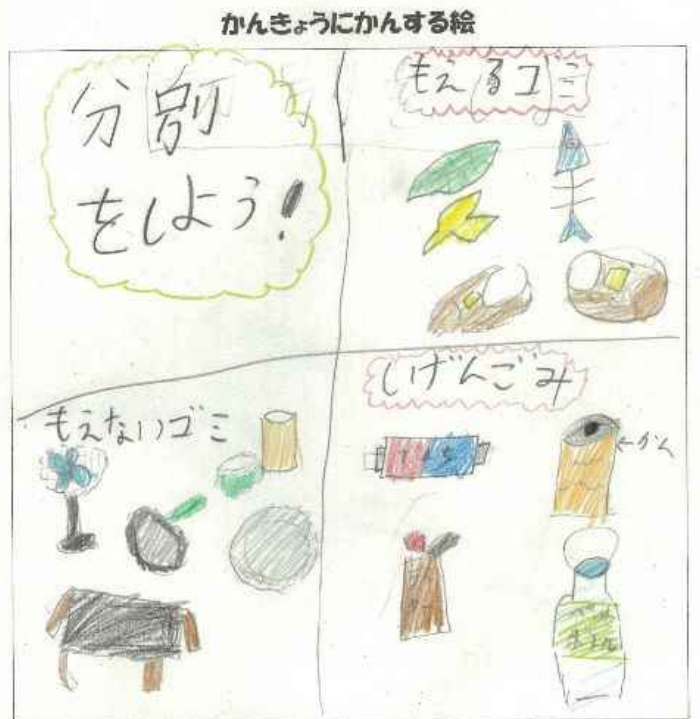 かんきょうにかんする絵
分別
をしよう!
もえるゴミ
もえないゴミ
しげんごみ
←かん
ボトル